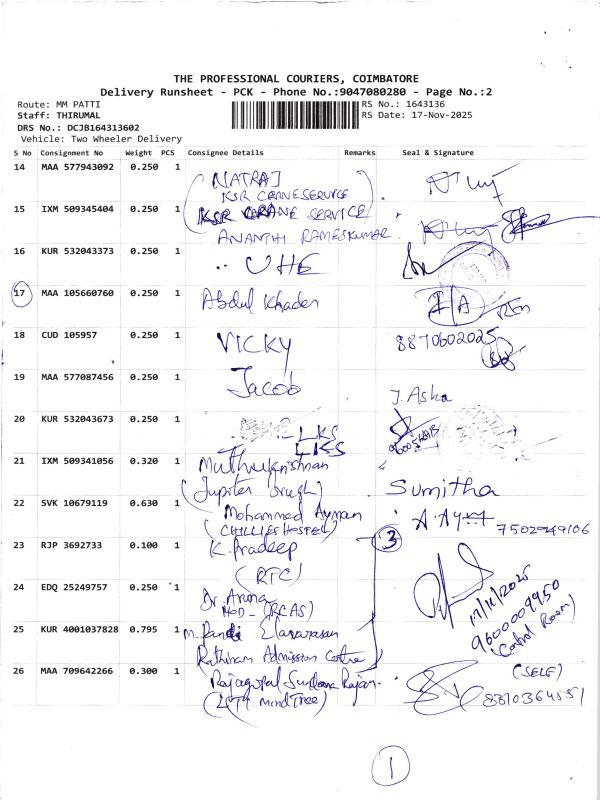 THE PROFESSIONAL COURIERS, COIMBATORE
Delivery Runsheet - PCK - Phone No.:9047080280 - Page No.:2
Route: MM PATTI
RS No.: 1643136
Staff: THIRUMAL
RS Date: 17-Nov-2025
DRS No.: DCJB164313602
Vehicle: Two Wheeler Delivery
S No Consignment No Weight PCS Consignee Details Remarks Seal & Signature
14 MAA 577943092 0.250 1 NATRAJ
KSR CRANE SERVICE
15 IXM 509345404 0.250 1 KSR CRANE SERVICE
ANANTHI RAMESKUMAR
16 KUR 532043373 0.250 1 UHE
17 MAA 105660760 0.250 1 Abdul Khader
18 CUD 105957 0.250 1 VICKY 8870602025
19 MAA 577087456 0.250 1 Jacob J. Asha
20 KUR 532043673 0.250 1 LKS
LKS
21 IXM 509341056 0.320 1 Muthukrishnan
(Jupiter) Sumitha
22 SVK 10679119 0.630 1 Mohammed Ayman
(CHILLIES HOSTEL) 7502949106
23 RJP 3692733 0.100 1 K. Pradeep 3
(RTC)
24 EDQ 25249757 0.250 1 Dr. Aruna
HOD - (RCAS) 17/11/2025
9600009950
(Control Room)
25 KUR 4001037828 0.795 1 M. Pandi Elavarasan
Rathinam Admission Centre
26 MAA 709642266 0.300 1 Rajagopal Sundara Rajan (SELF)
(LTI MindTree) 8810364551
1